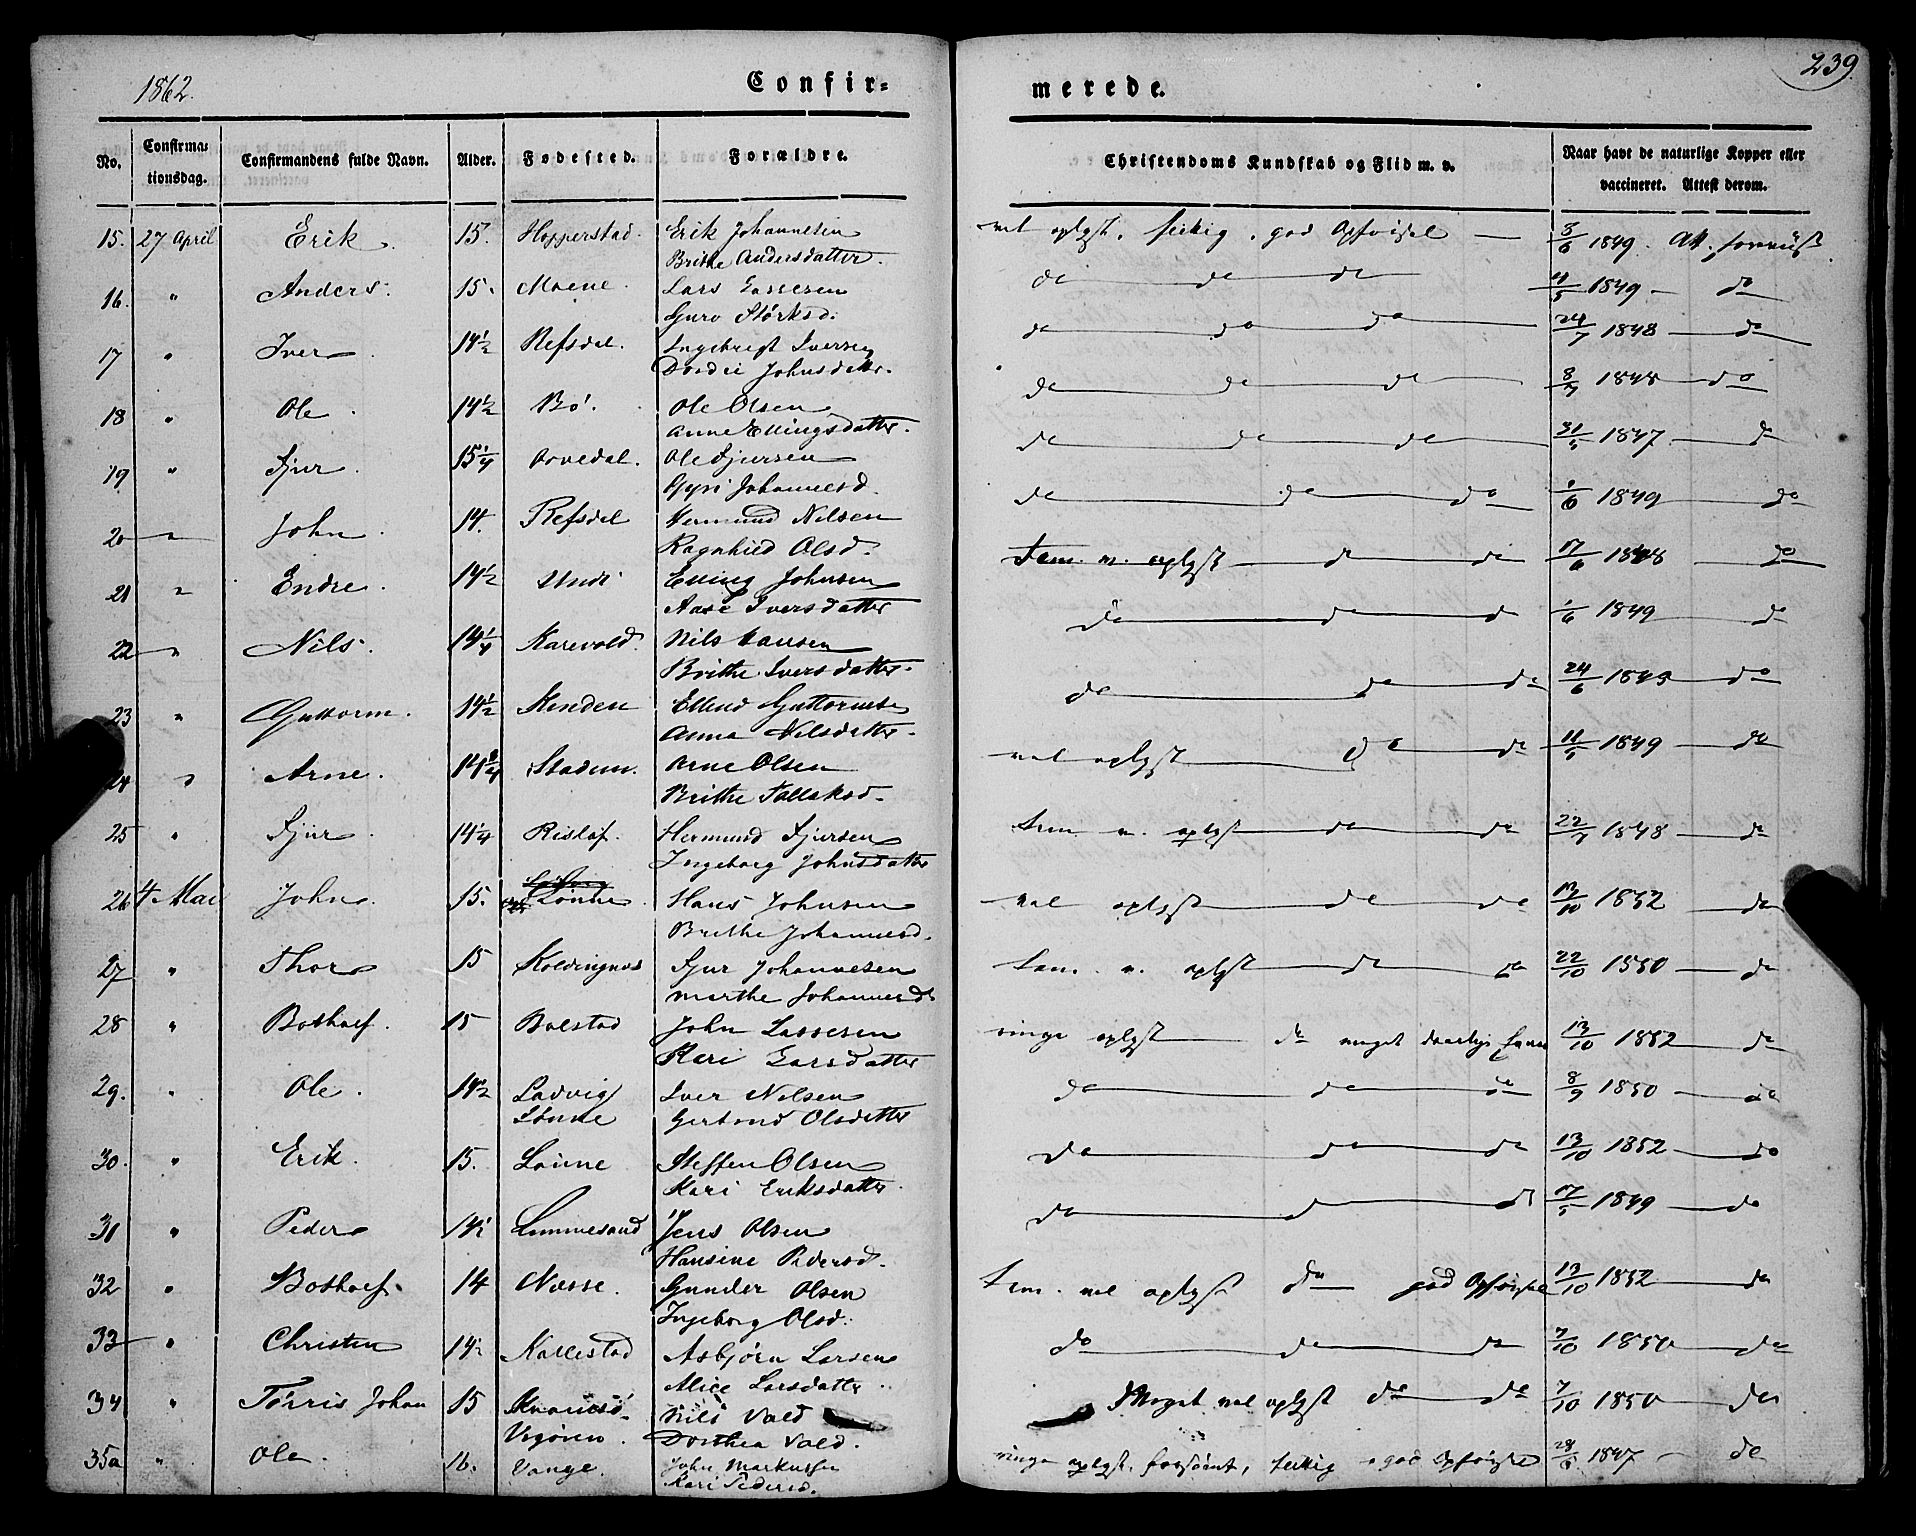 1862.
Confir=
merede.
239.
No.
Confirma=
tionsdag.
Confirmandens fulde Navn.
Alder.
Fødested.
Forældre.
Christendoms Kundskab og Flid m. v.
Naar havt de naturlige Kopper eller
vaccineret. Attest derom.
15. 27 April Erik. 15. Hopperstad. Erik Johannesen vel oplyst, god Opførsel — 3/6 1849. Att.
Brithe Andersdatter.
16. " Anders. 15. Moene. Lars Lassesen do do do 11/5 1849 — do
Guro Størksd.
17 " Iver 14½ Refsdal. Ingebrigt Iversen do do do 24/7 1848 — do
Johnsdatter.
18 " Ole 14½ Bø. Ole Olsen do do do 8/7 1848 — do
Anne Ellingsdatter.
19 " Sjur 15¼ Ole Sjursen do do do 31/5 1847 — do
Johannesd.
20 " John 14. Refsdal Hermund Nilsen do do do 1/6 1849 do
Ragnhild Olsd.
21 " Endre. 14½ Undi Elling Johnsen Tem. v. oplyst — do do 17/6 1848 do
Aase Iversdatter
22 " Nils. 14¼ Karevold. Nils Hansen do do do 1/6 1849 do
Brithe Iversdatter.
23 " Guttorm. 14½ Henden Ellend Guttormsen do do do 24/6 1849 do
Anna Nilsdatter.
24 " Arne. 14¾ Stadem. Arne Olsen vel oplyst do do 11/5 1849 — do
Brithe Fallaksd.
25 " Sjur 14¼ Hermund Sjursen tem. v. oplyst do do 22/7 1848 — do
Ingeborg Johnsdatter
26 4 Mai John. 15. Lønne Hans Johnsen vel oplyst do do 13/10 1852 — do
Brithe Johannesd.
27 " Thor 15 Koldingnæs Sjur Johannesen tem. v. oplyst do do 22/10 1850 — do
Marthe Johannesd
28 " Botholf. 15 Bolstad John Lassesen ringe oplyst do meget 13/10 1852 — do
Kari Larsdatter
29. " Ole. 14½ Ladvig Iver Nilsen do do do 8/9 1850 — do
Lønne Gertrud Olsdatter
30. " Erik. 15. Lønne Steffen Olsen do do do 13/10 1852 — do
Kari Eriksdatter.
31 " Peder 14½ Jens Olsen do do do 17/5 1849 — do
Hansine Pedersd.
32 " Botholf 14 Næsse. Gunder Olsen tem. vel oplyst do god Opførsel 13/10 1852 — do
Ingeborg Olsd.
33 " Christen 14½ Kallestad Asbjørn Larsen do do do 7/10 1850 — do
Alice Larsdatter.
34 " Tørris Johan 15 Nils Vold Meget vel oplyst do do 7/10 1850 — do
Dorthea Vold.
35a " Ole. 16. Vange. John Markussen ringe oplyst, forsømt, god Opførsel 28/6 1847 — do
Kari Pedersd.